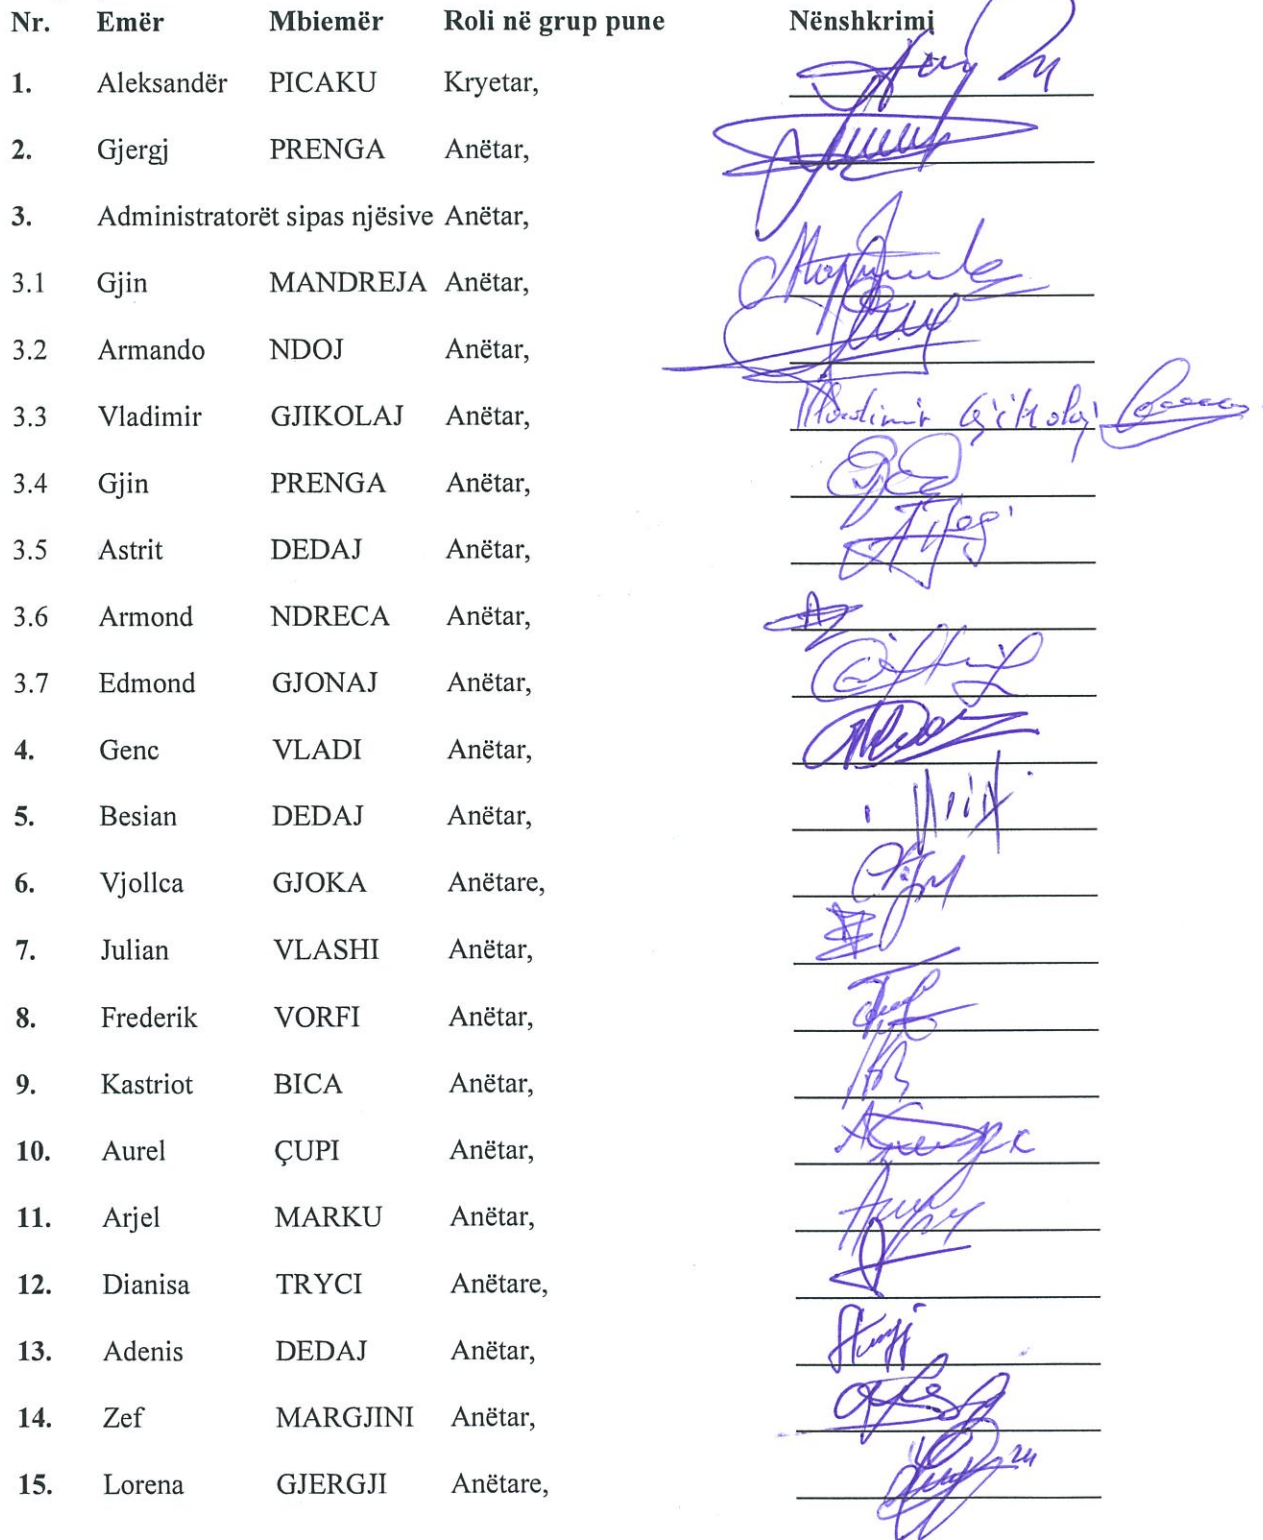 Nr. Emër Mbiemër Roli në grup pune Nënshkrimi
1. Aleksandër PICAKU Kryetar,
2. Gjergj PRENGA Anëtar,
3. Administratorët sipas njësive Anëtar,
3.1 Gjin MANDREJA Anëtar,
3.2 Armando NDOJ Anëtar,
3.3 Vladimir GJIKOLAJ Anëtar, Vladimir Gjikolaj
3.4 Gjin PRENGA Anëtar,
3.5 Astrit DEDAJ Anëtar,
3.6 Armond NDRECA Anëtar,
3.7 Edmond GJONAJ Anëtar,
4. Genc VLADI Anëtar,
5. Besian DEDAJ Anëtar,
6. Vjollca GJOKA Anëtare,
7. Julian VLASHI Anëtar,
8. Frederik VORFI Anëtar,
9. Kastriot BICA Anëtar,
10. Aurel ÇUPI Anëtar,
11. Arjel MARKU Anëtar,
12. Dianisa TRYCI Anëtare,
13. Adenis DEDAJ Anëtar,
14. Zef MARGJINI Anëtar,
15. Lorena GJERGJI Anëtare,